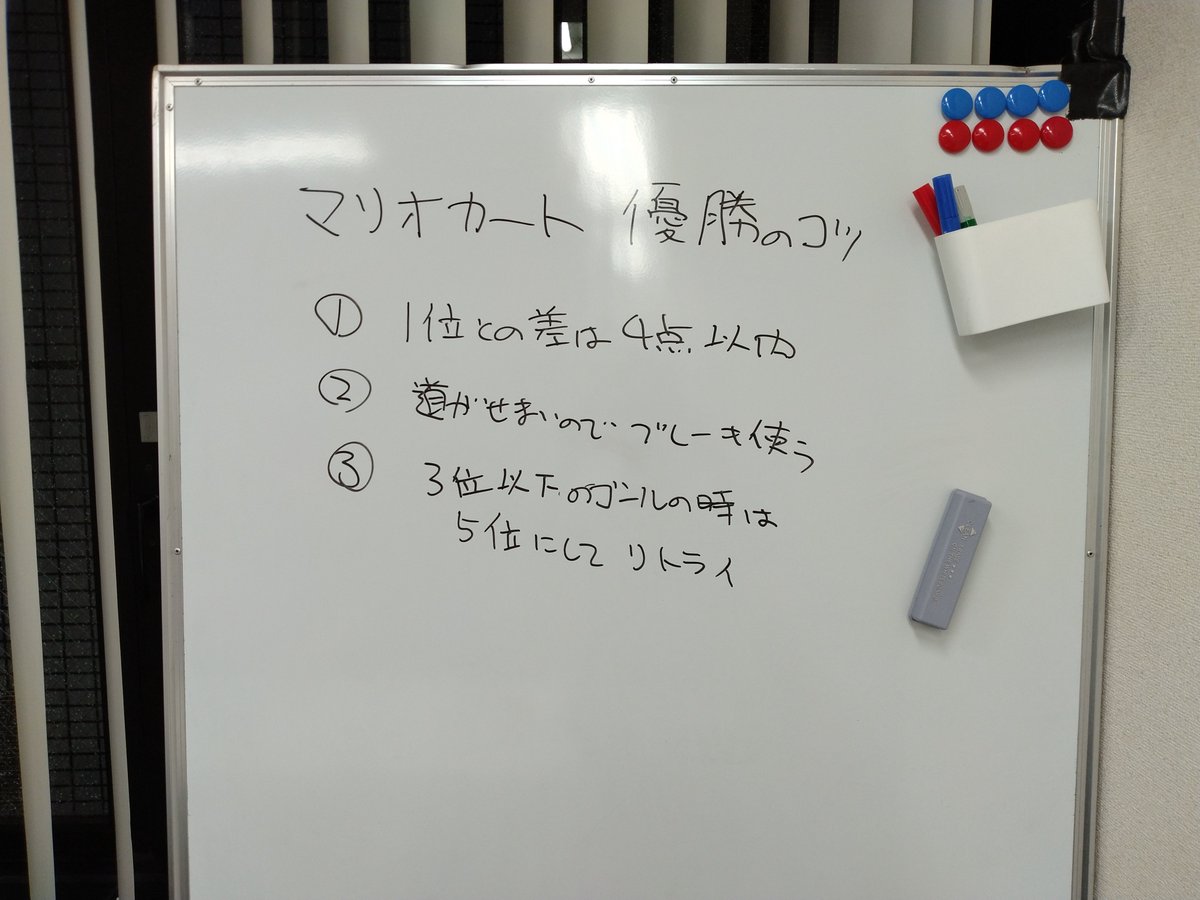 マリオカート 優勝のコツ
① 1位との差は4点以内
② 道がせまいので ブレーキ使う
③ 3位以下のゴールの時は
5位にして リトライ